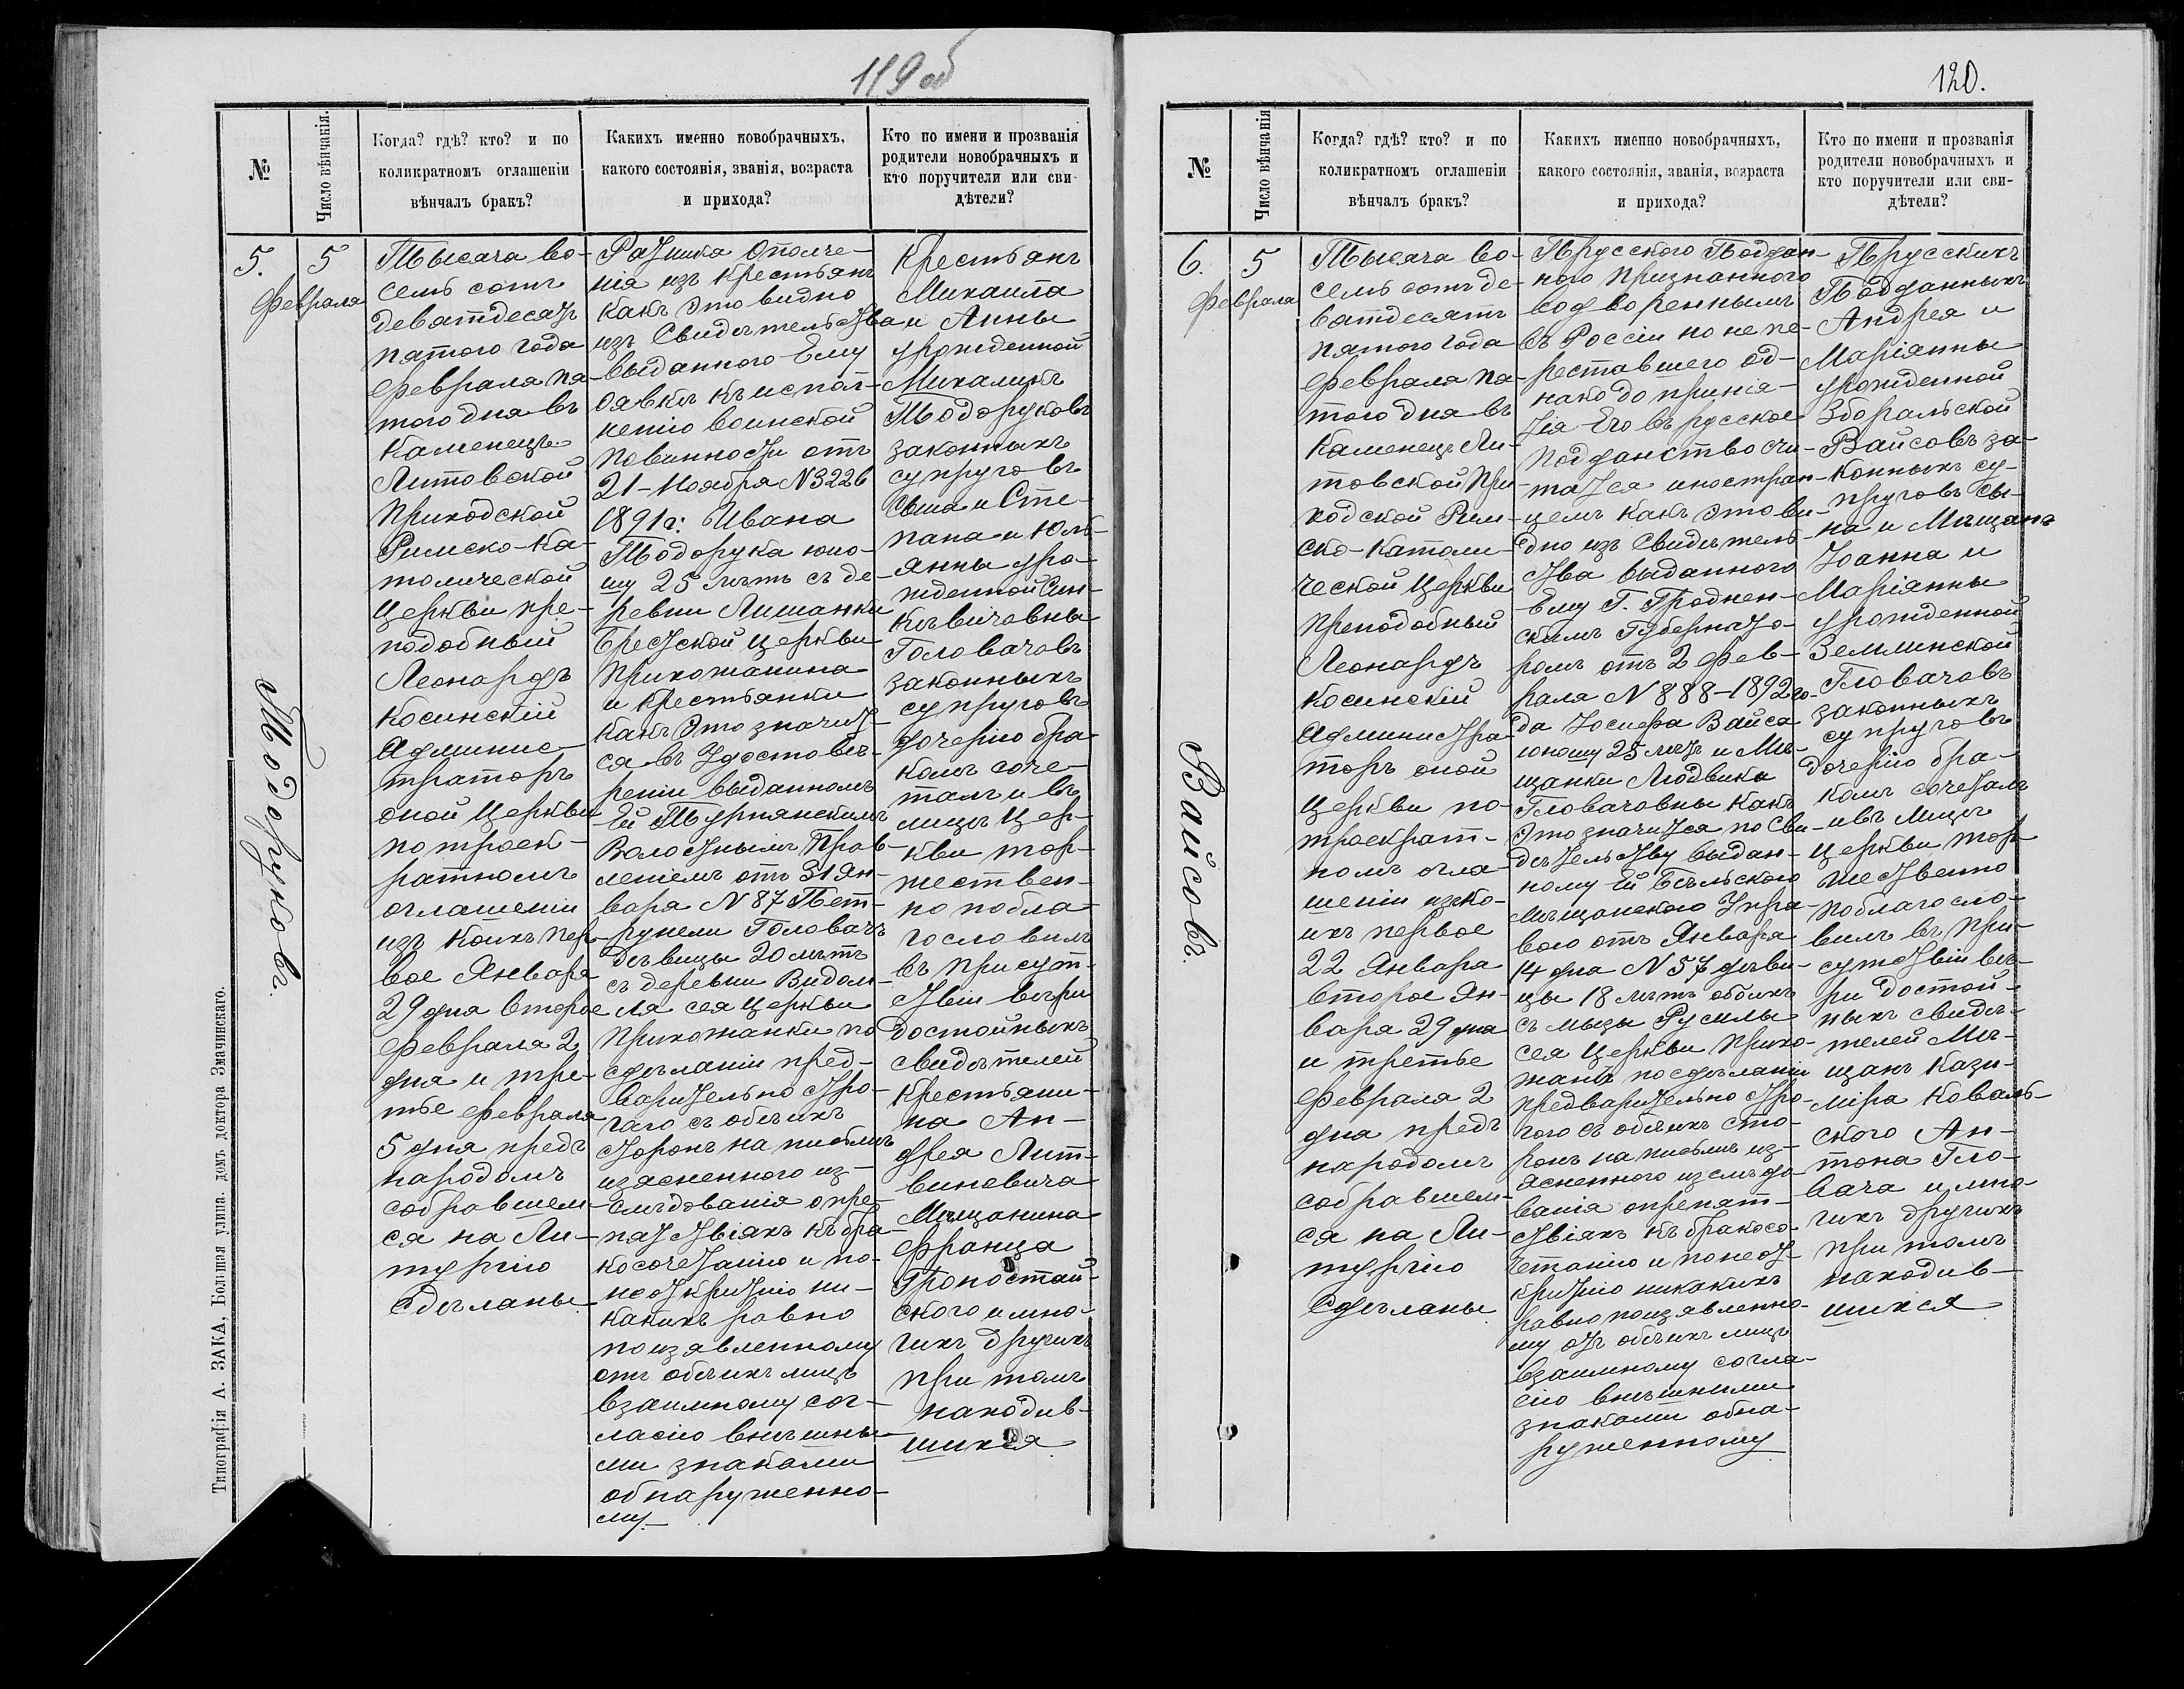 119 об
№
Число вѣнчанія.
Когда? гдѣ? кто? и по
коликратномъ оглашеніи
вѣнчалъ бракъ?
Какихъ именно новобрачныхъ,
какого состоянія, званія, возраста
и прихода?
Кто по имени и прозванія
родители новобрачныхъ и
кто поручители или сви-
дѣтели?
5.
5
Февраля
Тодоруковъ.
Тысяча во-
семь сотъ
девятдесятъ
пятого года
Февраля пя-
того дня въ
Каменецъ
Литовской
Приходской
Римско-Ка-
толической
Церкви пре-
подобный
Леонардъ
Косинскій
Админис-
траторъ
оной Церкви
по троек-
ратномъ
оглашеніи
изъ коихъ пер-
вое Января
29 дня второе
Февраля 2
дня и тре-
тье Февраля
5 дня предъ
народомъ
собравшем-
ся на Ли-
тургію
сдѣланы
Ратника Ополче-
нія изъ Крестьянъ
какъ это видно
изъ Свидѣтельства
выданного Ему
о явкѣ къ испол-
ненію воинской
повинности отъ
21-Ноября N 3226
1891 г: Ивана
Тодорука юно-
шу 25 лѣтъ съ де-
ревни Лишанки
Брестской Церкви
Прихожанина
и Крестьянки
какъ это значит-
ся въ Удостовѣ-
реніи выданномъ
Ей Турнянскимъ
Волостнымъ Прав-
леніемъ отъ 31 Ян-
варя N 87 Пет-
рунели Головачъ
дѣвицы 20 лѣтъ
съ деревни Видом-
ля сея Церкви
Прихожанки по
сдѣланіи пред-
варительно стро-
гаго съ обѣихъ
сторонъ на письмѣ
изясненного из-
слѣдованія о пре-
пятствіяхъ къ бра-
косочетанію и по-
неоткритію ни-
какихъ равно
по изявленному
отъ обѣихъ лицъ
взаимному сог-
ласію внѣшны-
ми знаками
обнаруженно-
му.
Крестьянъ
Михаила
и Анны
урожденной
Михалюкъ
Тодоруковъ
законныхъ
супруговъ
сына и Сте-
пана и Юль-
янны уро-
жденной Син-
кѣвичовны
Головачовъ
законныхъ
супруговъ
дочерію бра-
комъ соче-
талъ и въ
лицѣ Цер-
кви тор-
жествен-
но побла-
гословилъ
въ присут-
ствіи вѣри
достойныхъ
свидѣтелей
Крестьяни-
на Ан-
дрея Лит-
виневича
Мѣщанина
Франца
Гроностай-
ского и мно-
гихъ другихъ
при томъ
находив-
шихся
Типографія А. ЗАКА, Большая улица. домъ доктора Змачинскаго.
120.
№
Число вѣнчанія
Когда? гдѣ? кто? и по
коликратномъ оглашеніи
вѣнчалъ бракъ?
Какихъ именно новобрачныхъ,
какого состоянія, званія, возраста
и прихода?
Кто по имени и прозванія
родители новобрачныхъ и
кто поручители или сви-
дѣтели?
6.
5
Февраля
Вайсовъ.
Тысяча во-
семь сотъ де-
вятдесятъ
пятого года
Февраля пя-
того дня въ
Каменецъ Ли-
товской При-
ходской Рим-
ско-Католи-
ческой Церкви
Преподобный
Леонардъ
Косинскій
Администра-
торъ оной
Церкви по
троекрат-
номъ огла-
шеніи изъ ко-
ихъ первое
22 Января
второе Ян-
варя 29 дня
и третье
Февраля 2
дня предъ
народомъ
собравшем-
ся на Ли-
тургію
Сдѣланы
Прусского Поддан-
ного признанного
водвореннымъ
въ Россіи но не пе-
реставшего од-
нако до приня-
тія Его въ русское
подданство счи-
таться иностран-
цемъ какъ это ви-
дно изъ Свидѣтель-
ства выданного
Ему Г. Гроднен-
скимъ Губернато-
ромъ отъ 2 Фев-
раля N 888-1892 го-
да Іосифа Вайса
юношу 25 лѣтъ и Мѣ-
щанки Людвики
Гловачовны какъ
это значится по Сви-
дѣтельству выдан-
ному Ей Бѣльского
Мѣщанского Упра-
вою отъ Января
14 дня N 57 дѣви-
цы 18 лѣтъ обоихъ
съ мызы Русилы
сея Церкви Прихо-
жанъ по сдѣланіи
предварительно стро-
гого съ обѣихъ сто-
ронъ на письмѣ из-
ясненного изслѣдо-
ванія о препят-
ствіяхъ къ бракосо-
четанію и по неот-
критію никакихъ
равно по изявленно-
му отъ обѣихъ лицъ
взаимному согла-
сію внѣшними
знаками обна-
руженному
Прусскихъ
Подданныхъ
Андрея и
Маріянны
урожденной
Зборальской
Вайсовъ за-
конныхъ су-
пруговъ сы-
на и Мѣщанъ
Іоанна и
Маріянны
урожденной
Землинской
Гловачовъ
законныхъ
супруговъ
дочерію бра-
комъ сочеталъ
и въ лицѣ
Церкви тор-
жественно
поблагосло-
вилъ въ при-
сутствіи вѣ-
ри достой-
ныхъ свидѣ-
телей Мѣ-
щанъ Кази-
міра Коваль-
ского Ан-
тона Гло-
вача и мно-
гихъ другихъ
при томъ
находив-
шихся